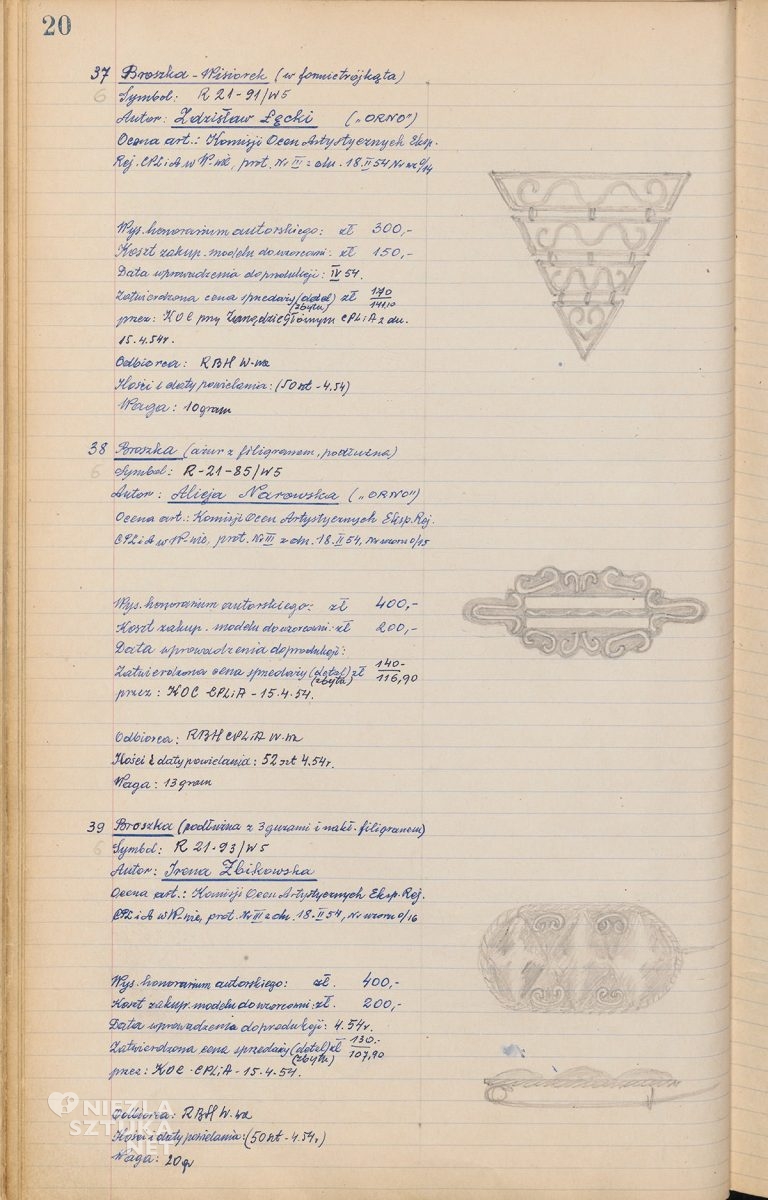 20
37 Broszka - Wisiorek (w formie trójkąta)
6 Symbol: R 21-91/W5
Autor: Zdzisław Łęcki ("ORNO")
Ocena art.: Komisji Ocen Artystycznych Eksp.
Rej. CPLiA w W-wie, prot. Nr III z dn. 18.II 54, Nr wz 0/14
Wys. honorarium autorskiego: zł 300,-
Koszt zakup. modelu do wzorcowni: zł 150,-
Data wprowadzenia do produkcji: IV 54.
Zatwierdzona cena sprzedaży (detal) zł 170
(zbytu) 141,10
przez: KOC przy Zarządzie Głównym CPLiA z dn.
15.4.54r.
Odbiorca: RBH W-wa
Ilości i daty powielania: (50 szt - 4.54)
Waga: 10 gram
38 Broszka (ażur z filigranem, podłużna)
6 Symbol: R-21-85/W5
Autor: Alicja Narowska ("ORNO")
Ocena art.: Komisji Ocen Artystycznych Eksp. Rej.
CPLiA w W-wie, prot. Nr III z dn. 18.II 54, Nr wzoru 0/15
Wys. honorarium autorskiego: zł 400,-
Koszt zakup. modelu do wzorcowni: zł 200,-
Data wprowadzenia do produkcji:
Zatwierdzona cena sprzedaży (detal) zł 140-
(zbytu) 116,90
przez: KOC CPLiA - 15.4.54.
Odbiorca: RBH CPLiA W-wa
Ilości i daty powielania: 52 szt 4.54r.
Waga: 13 gram
39 Broszka (podłużna z 3 guzami i nakł. filigranem)
6 Symbol: R 21-93/W5
Autor: Irena Zbikowska
Ocena art.: Komisji Ocen Artystycznych Eksp. Rej.
CPLiA w W-wie, prot. Nr III z dn. 18.II 54, Nr wzoru 0/16
Wys. honorarium autorskiego: zł. 400,-
Koszt zakup. modelu do wzorcowni: zł. 200,-
Data wprowadzenia do produkcji: 4.54r.
Zatwierdzona cena sprzedaży (detal) zł 130.-
(zbytu) 107,90
przez: KOC - CPLiA - 15.4.54.
Odbiorca: RBH W-wa
Ilości i daty powielania: (50 szt - 4.54r)
Waga: 20 gr
NIEZŁA
SZTUKA
.NET